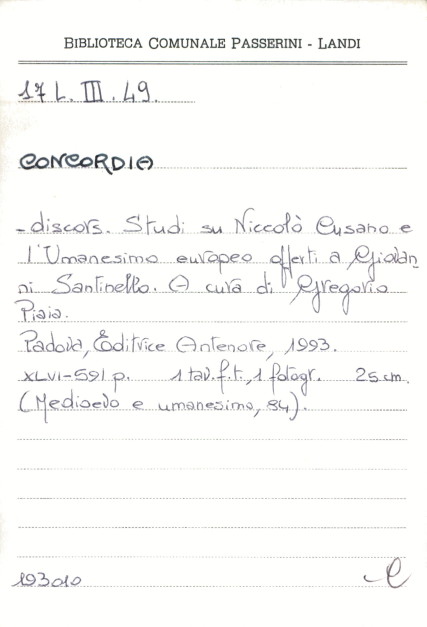 BIBLIOTECA COMUNALE PASSERINI - LANDI
17 L. III. 49.
CONCORDIA
- discors. Studi su Niccolò Cusano e
l'Umanesimo europeo offerti a Giovan
ni Santinello. A cura di Gregorio
Piaia.
Padova, Editrice Antenore, 1993.
XLVI-591 p. 1 tav. f.t., 1 fotogr. 25 cm.
(Medioevo e umanesimo, 84).
193010